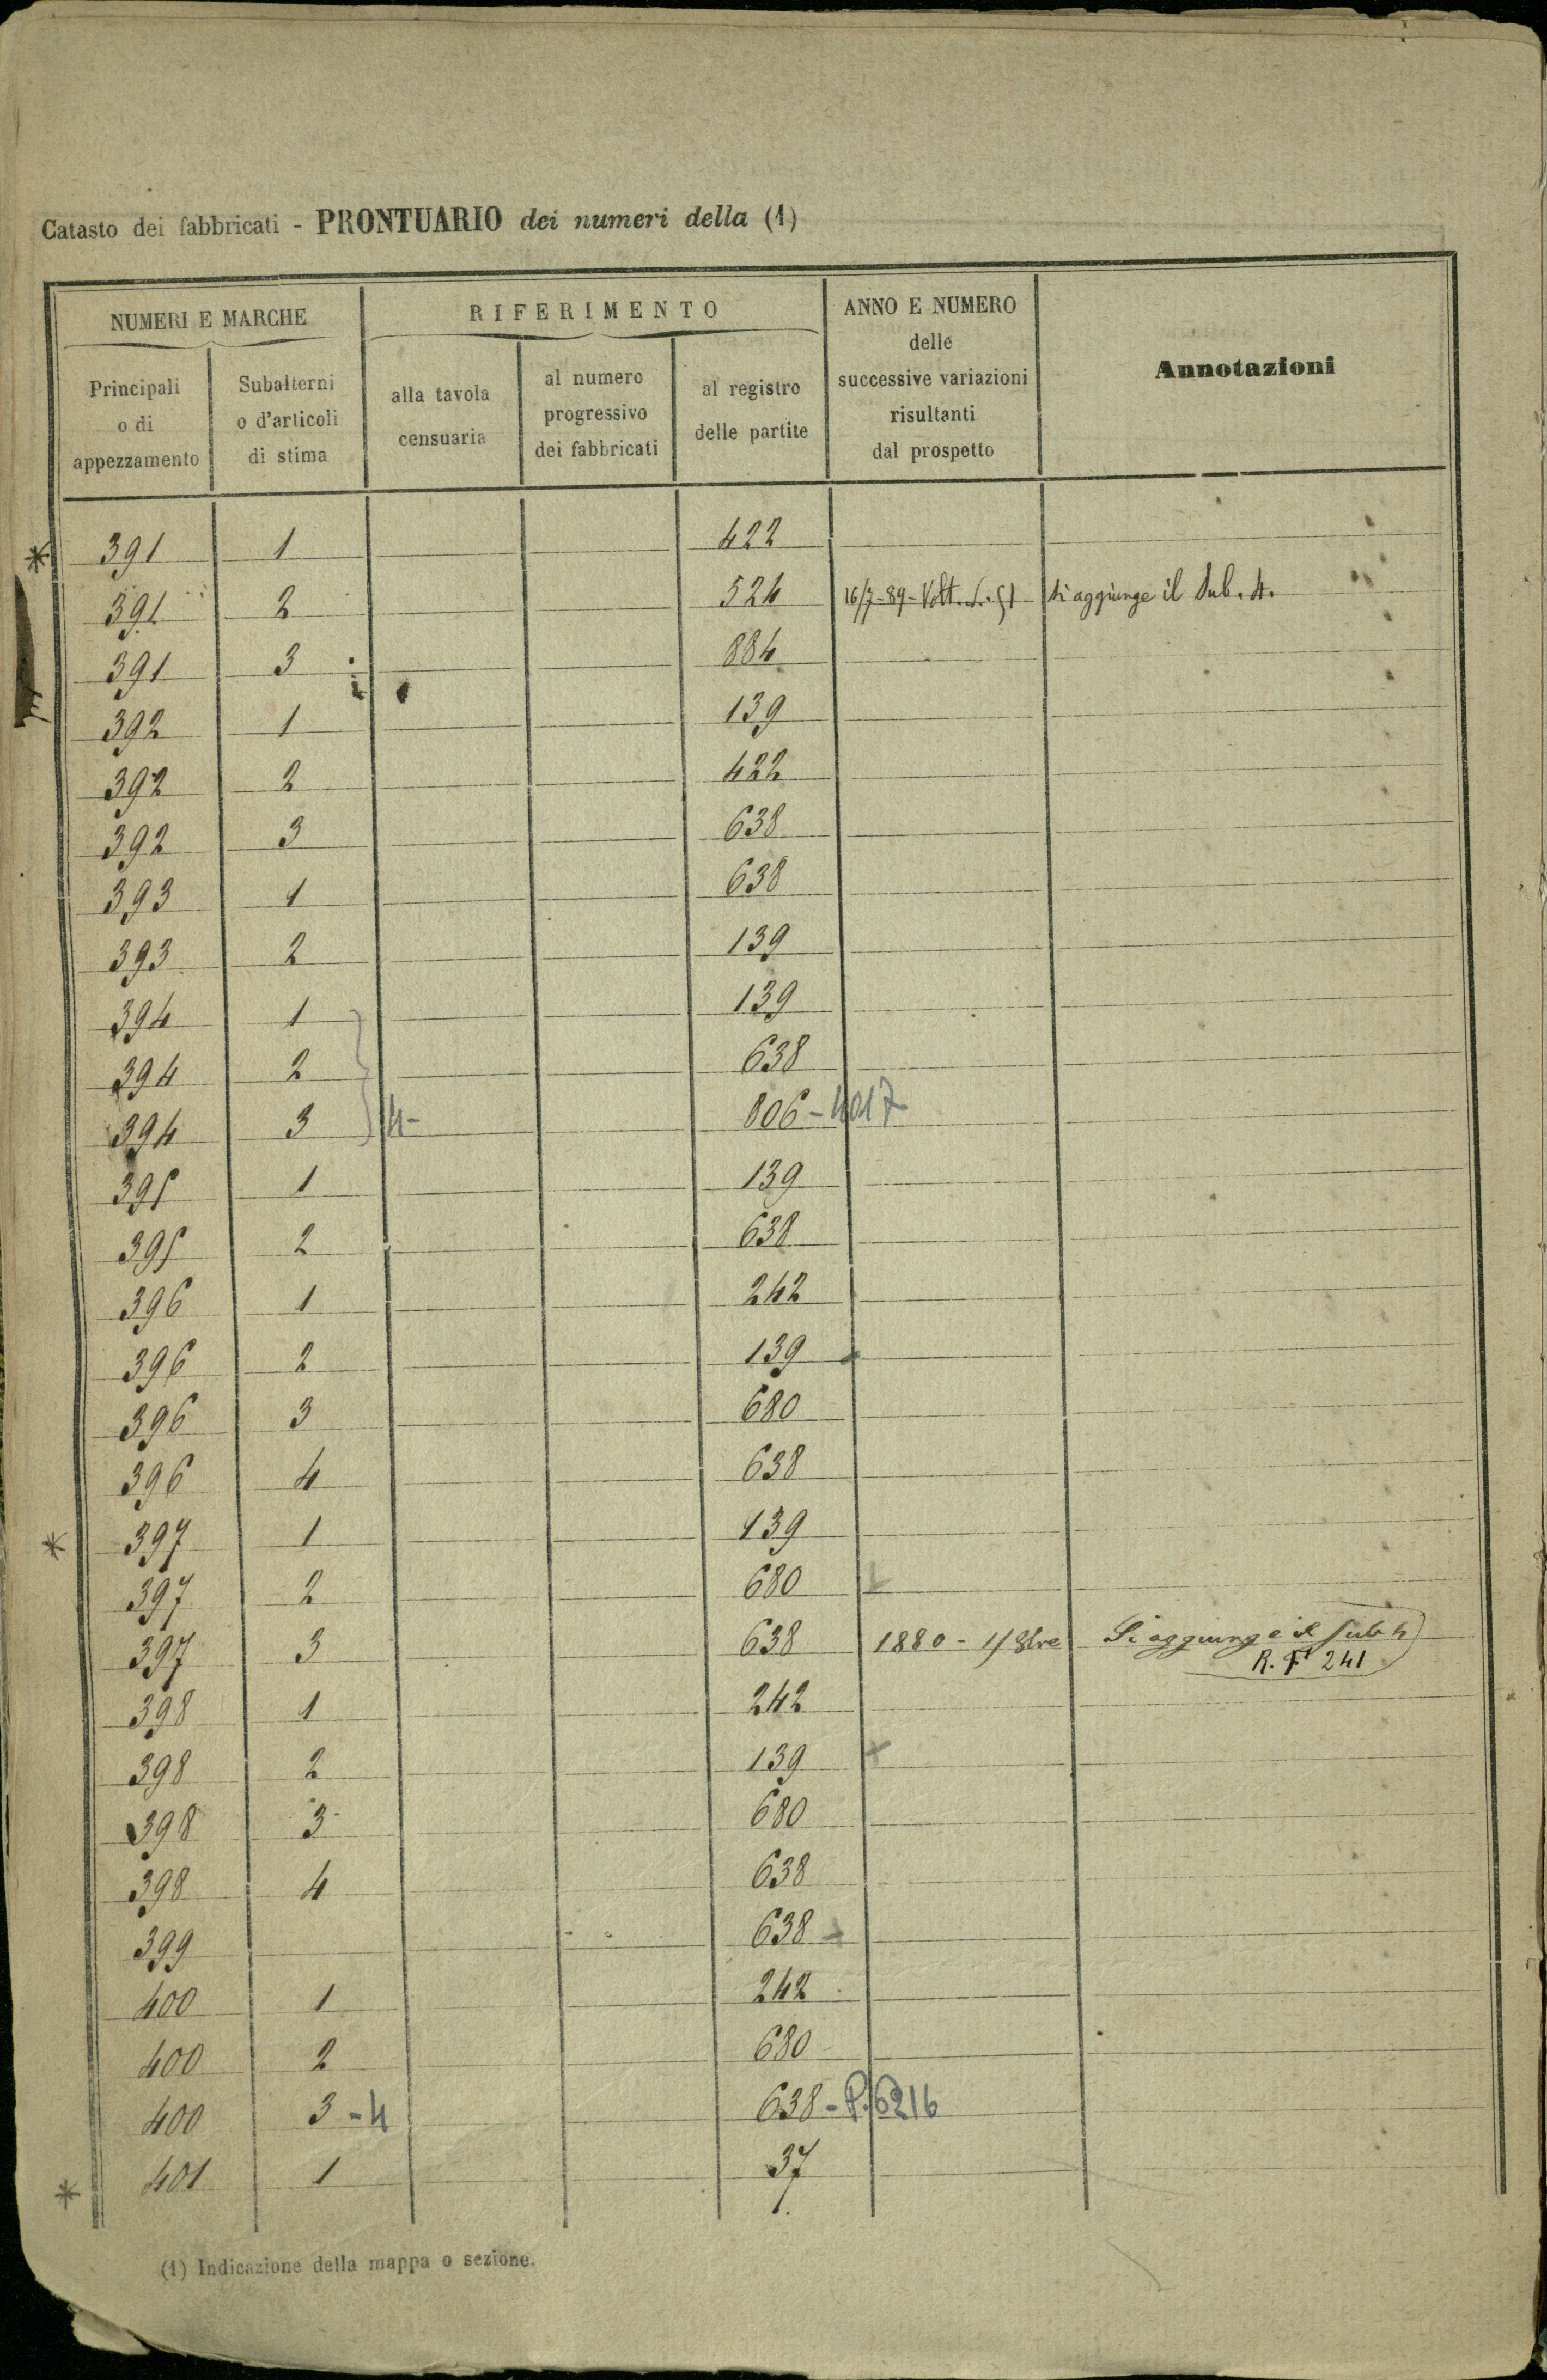 Catasto dei fabbricati - PRONTUARIO dei numeri della (1)
NUMERI E MARCHE
RIFERIMENTO
ANNO E NUMERO
delle
successive variazioni
risultanti
dal prospetto
Annotazioni
Principali
o di
appezzamento
Subalterni
o d'articoli
di stima
alla tavola
censuaria
al numero
progressivo
dei fabbricati
al registro
delle partite
* 391 1 422
391 2 524 16/7-89- si aggiunge il Sub. 4.
391 3 884
392 1 139
392 2 422
392 3 638
393 1 638
393 2 139
394 1 139
394 2 638
394 3 4- 806-4017
395 1 139
395 2 638
396 1 242
396 2 139
396 3 680
396 4 638
* 397 1 139
397 2 680
397 3 638 1880 - 1/8bre Si aggiunge il Sub 4
R. F 241
398 1 242
398 2 139 +
398 3 680
398 4 638
399 638
400 1 242
400 2 680
400 3-4 638-P.6216
* 401 1 37
(1) Indicazione della mappa o sezione.